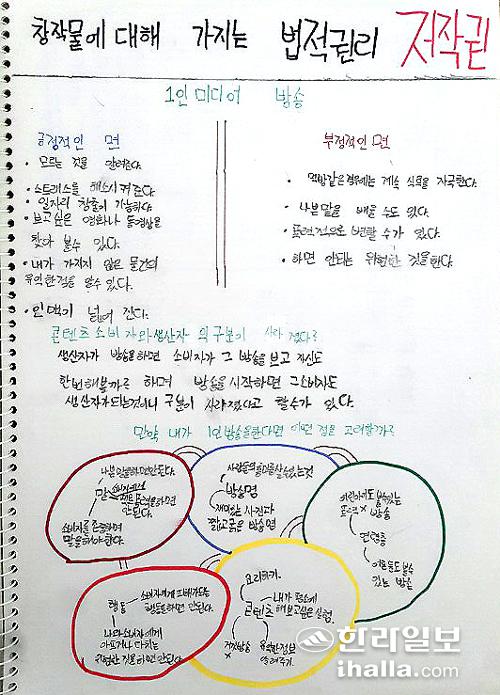 창작물에 대해 가지는 법적권리 저작권
1인 미디어 방송
긍정적인 면
• 모르는 것을 알려준다.
• 스트레스를 해소시켜준다.
• 일자리 창출이 가능하다.
• 보고싶은 영화나 동영상을
찾아 볼수 있다.
• 내가 가지지 않은 물건의
유익한점을 알수있다.
• 인맥이 넓어 진다.
부정적인 면
• 먹방같은경우에는 계속 식욕을 자극한다.
• 나쁜말을 배울 수도 있다.
• 폭력적으로 변할 수가 있다.
• 하면 안되는 위험한 것을한다.
콘텐츠 소비자와 생산자의 구분이 사라졌다?
생산자가 방송을하면 소비자가 그 방송을 보고 자신도
한번해볼까? 하며 방송을시작하면 그소비자도
생산자가되는것이니 구분이 사라졌다고 할수가 있다.
만약 내가 1인방송을한다면 어떤 점을 고려할까?
나쁜말을하면안된다.
말
안된다.
소비자를 존중하며
말을해야한다.
방송명
재미있는 사진과
짧고굵은 방송명
방송
연령층
어른들도볼수
있는 방송
행동
소비자에게 피해가되는
행동을하면 안된다.
나와소비자에게
위험한 것을하면 안된다.
요리하기.
콘텐츠
내가 평소에
해보고싶은 실험.
유익한정보
알려주기.
한라일보
ihalla.com